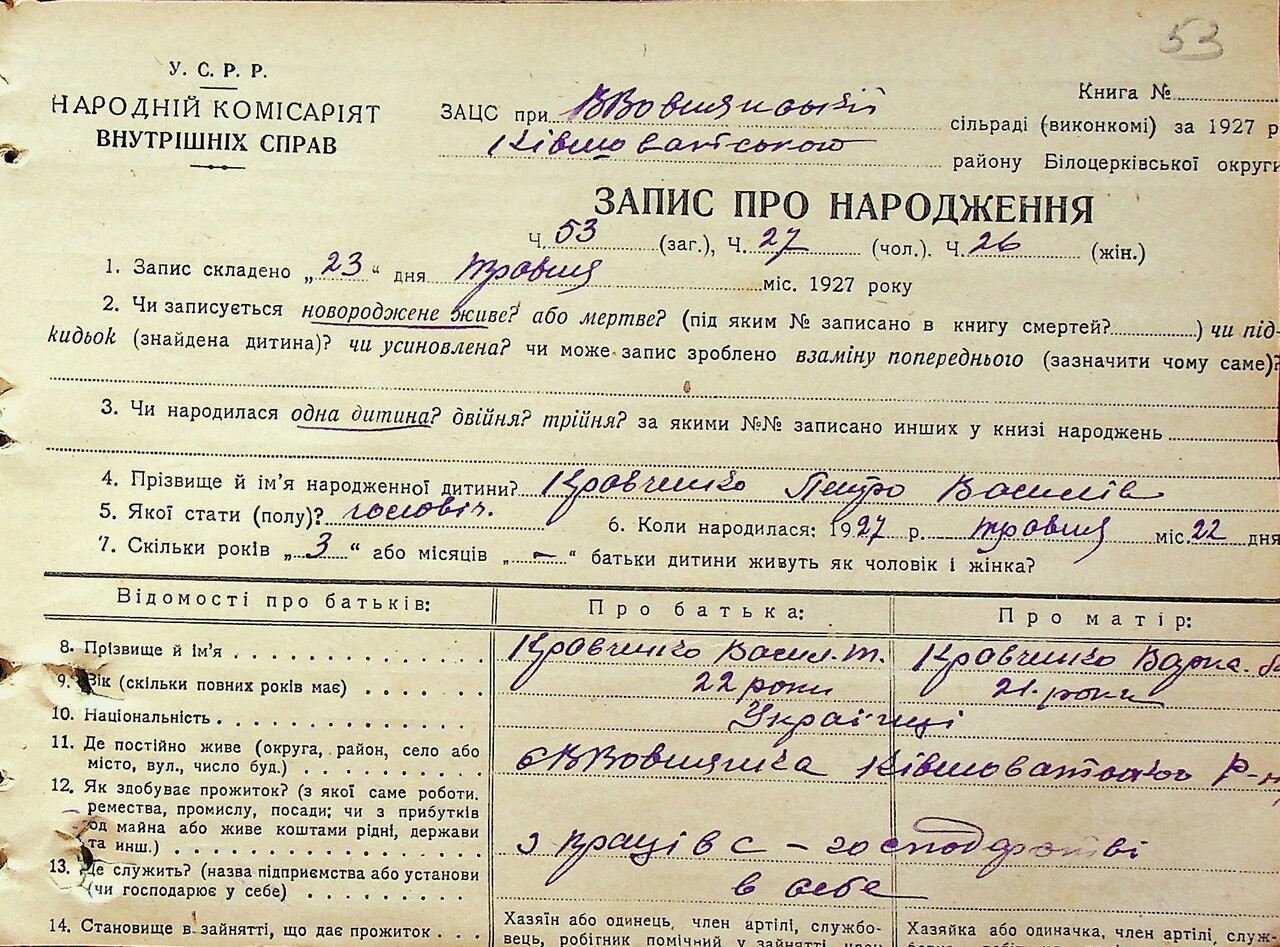 53
У. С. Р. Р.
НАРОДНІЙ КОМІСАРІЯТ
ВНУТРІШНІХ СПРАВ
Книга №
ЗАЦС при ВВовнянській сільраді (виконкомі) за 1927 р
Ківшоватського району Білоцерківської округи
ЗАПИС ПРО НАРОДЖЕННЯ
Ч. 53 (заг.), Ч. 27 (чол.). Ч. 26 (жін.)
1. Запис складено „23“ дня травня міс. 1927 року
2. Чи записується новороджене живе? або мертве? (під яким № записано в книгу смертей?) чи під-
кидьок (знайдена дитина)? чи усиновлена? чи може запис зроблено взаміну попереднього (зазначити чому саме)?
3. Чи народилася одна дитина? двійня? трійня? за якими №№ записано инших у книзі народжень
4. Прізвище й ім'я народженної дитини? Кравченко Петро Василів
5. Якої стати (полу)? чоловіч. 6. Коли народилася: 1927 р. травня міс. 22 дня
7. Скільки років „3“ або місяців „—“ батьки дитини живуть як чоловік і жінка?
Відомості про батьків: Про батька: Про матір:
8. Прізвище й ім'я Кравченко Васил. Т. Кравченко Варка
9. Вік (скільки повних років має) 22 роки 21. роки
10. Національність Українці
11. Де постійно живе (округа, район, село або
місто, вул., число буд.) с ВВовнянка Ківшоватського Р-н
12. Як здобуває прожиток? (з якої саме роботи,
ремества, промислу, посади; чи з прибутків
од майна або живе коштами рідні, держави
та инш.) з праці в с - господарстві
13. Де служить? (назва підприємства або установи
(чи господарює у себе) в себе
14. Становище в зайнятті, що дає прожиток
Хазяїн або одинець, член артілі, службо- Хазяйка або одиначка, член артілі, служ-
вець, робітник помічний у зайнятті член